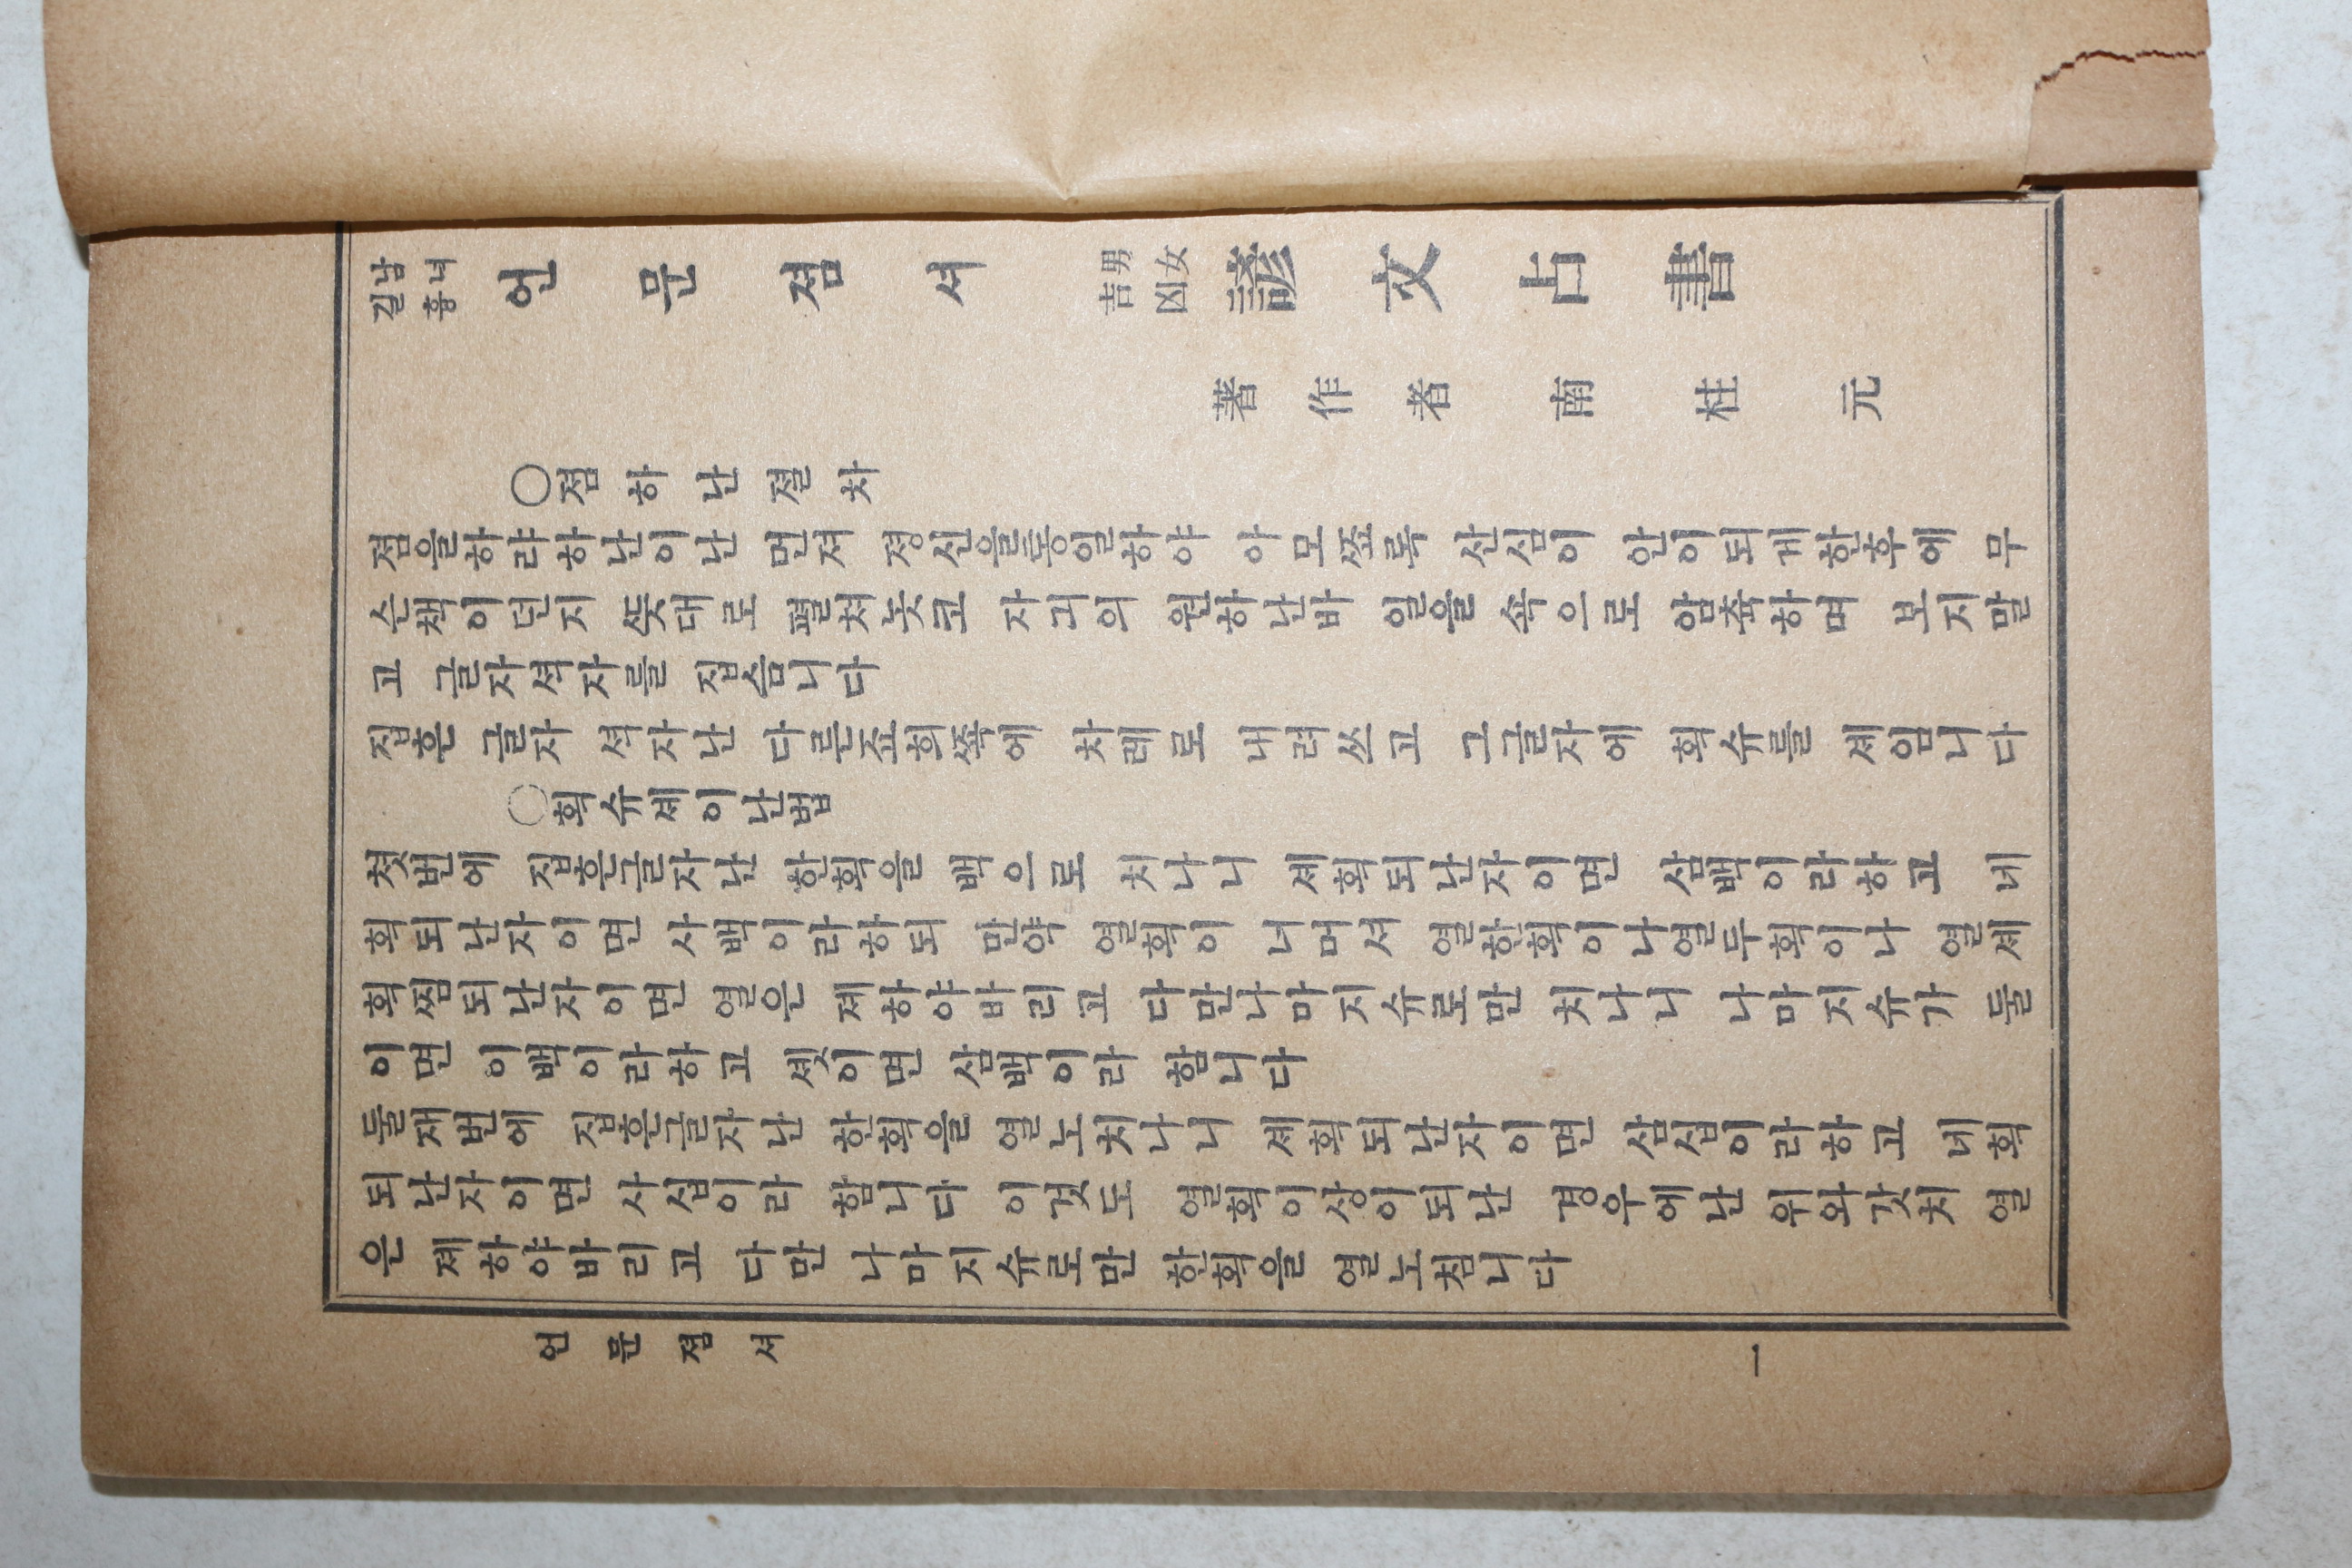 남녀길흉 언문졈셔 男女吉凶 諺文占書
著作者 南柱元
○졈하난졀차
졈을하랴하난이난 먼져 졍신을통일하야 아모쪼록 산심이 안이되게한후에 무
슨책이던지 ᄯᅳᆺ대로 펼쳐놋코 자긔의 원하난바 일을 속으로 암츅하며 보지말
고 글자셕자를 집슴니다
집흔 글자 셕자난 다른죠희쪽에 차례로 내려쓰고 그글자에 획슈를 셰임니다
○획슈셰이난법
첫번에 집흔글자난 한획을 백으로 치나니 셰획되난자이면 삼백이라하고 네
획되난자이면 사백이라하되 만약 열획이 너머셔 열한획이나열두획이나 열셰
획찜되난자이면 열은 졔하야바리고 다만나마지슈로만 치나니 나마지슈가 둘
이면 이백이라하고 셋이면 삼백이라 함니다
둘재번에 집흔글자난 한획을 열노치나니 셰획되난자이면 삼십이라하고 네획
되난자이면 사십이라 함니다 이것도 열획이상이되난 경우에난 위와갓치 열
은 졔하야바리고 다만 나마지슈로만 한획을 열노침니다
언문졈셔 一